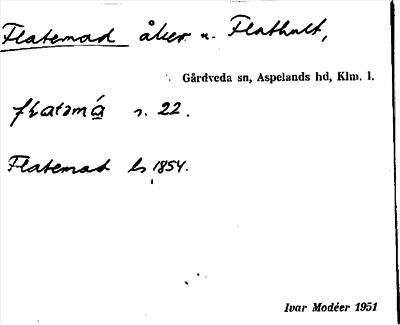 Flatemad åker u. Flathult,
Gårdveda sn, Aspelands hd, Klm. l.
flatəmá s. 22.
Flatemad ls 1854.
Ivar Modéer 1951